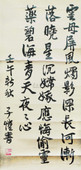 雲母屏風燭影深長河漸
落曉星沉嫦娥應悔偷靈
藥碧海青天夜夜心